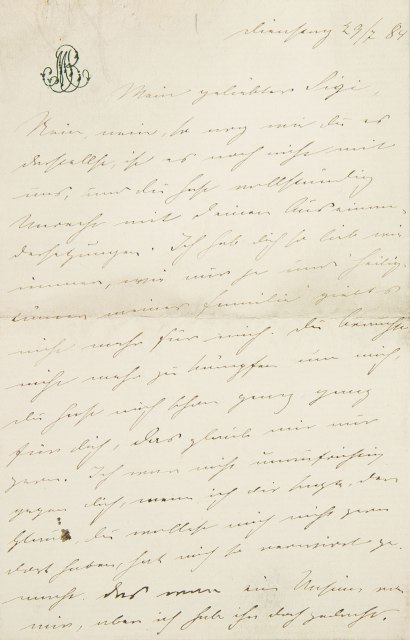 Dienstag 29/7 84
Mein geliebter Sigi,
Nein, nein, so arg wie du es
darstellst, ist es noch nicht mit
uns, und du hast vollständig
Unrecht mit deinen Auseinan-
dersetzungen. Ich hab dich so lieb wie
immer, wie nur je und Heilig-
tümer meiner Familie giebts
nicht mehr für mich. Du brauchst
nicht mehr zu kämpfen um mich
du hast mich schon ganz ganz
für dich, das glaub mir nur
gern. Ich war nicht unaufrichtig
gegen dich, wenn ich dir sagte, der
Glaube du wolltest mich nicht gern
dort haben, hat mich so verwirrt ge-
macht. Das war ein Unsinn von
mir, aber ich hab ihn doch gedacht.